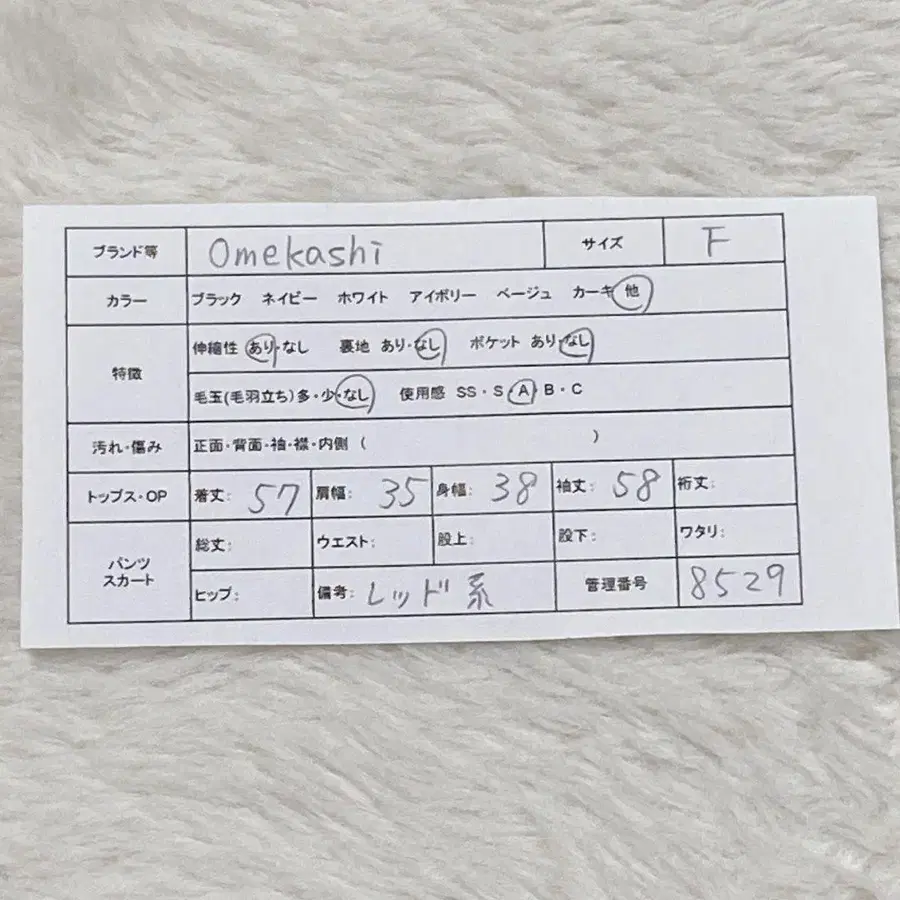 ブランド等 Omekashi サイズ F
カラー ブラック ネイビー ホワイト アイボリー ベージュ カーキ 他
特徴 伸縮性 あり・なし 裏地 あり・なし ポケット あり・なし
毛玉(毛羽立ち)多・少・なし 使用感 SS・S・A・B・C
汚れ・傷み 正面・背面・袖・襟・内側 ( )
トップス・OP 着丈: 57 肩幅: 35 身幅: 38 袖丈: 58 裄丈:
パンツ スカート 総丈: ウエスト: 股上: 股下: ワタリ:
ヒップ: 備考: レッド系 管理番号 8529